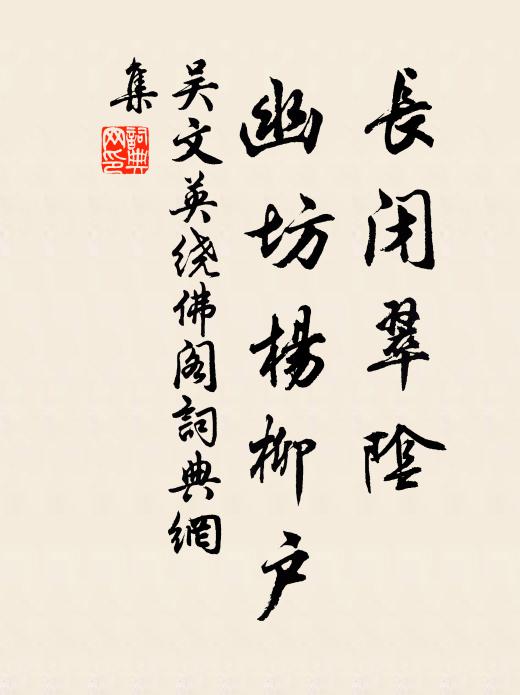 長闭翠陰
幽坊楊柳户
吴文英绕佛阁詞典網
集
詞典網印